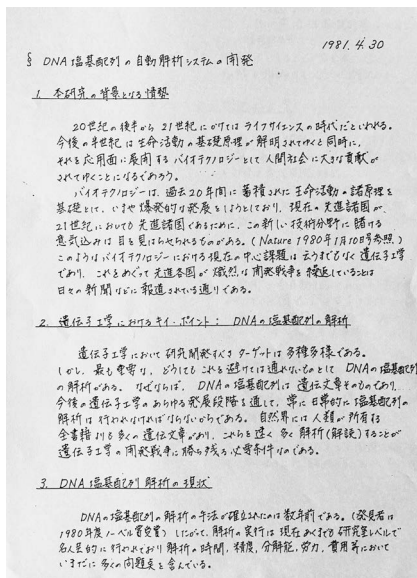 1981. 4. 30
§ DNA塩基配列の自動解析システムの開発
1. 本研究の背景となる情勢
20世紀の後半から21世紀にかけてはライフサイエンスの時代だといわれる。
今後の半世紀は生命活動の基礎原理が解明されてゆくと同時に、
それを応用面に展開するバイオテクノロジーとして人間社会に大きな貢献が
されてゆくことになるであろう。
バイオテクノロジーは、過去20年間に蓄積された生命活動の諸原理を
基礎として、いまや爆発的な発展をしようとしており、現在の先進諸国が、
21世紀においても先進諸国であるために、この新しい技術分野に賭ける
意気込みは目を見はらせられるものがある。(Nature 1980年1月10日号参照)
このようなバイオテクノロジーにおける現在の中心課題は云うまでもなく遺伝子工学
であり、これをめぐって先進各国が熾烈な開発戦争を繰返していることは
日々の新聞などに報道されている通りである。
2. 遺伝子工学におけるキイ・ポイント: DNAの塩基配列の解析
遺伝子工学において研究開発すべきターゲットは多種多様である。
しかし、最も重要な、どうしてもこれを避けては通れないものとしてDNAの塩基配列
の解析がある。なぜならば、DNAの塩基配列は遺伝文章そのものであり、
今後の遺伝子工学のあらゆる発展段階を通して、常に日常的に塩基配列の
解析は行われなければならないからである。自然界には人類が所有する
全書籍よりも多くの遺伝文章があり、これらを速く多く解析(解読)することが
遺伝子工学の開発戦争に勝ち残る必要条件なのである。
3. DNA塩基配列解析の現状
DNAの塩基配列の解析の手法が確立されたのは数年前である。(発見者は
1980年度ノーベル賞受賞) したがって、解析の実行は現在あくまでも研究室レベルで
名人芸的に行われており解析の時間、精度、分解能、労力、費用等において
いまだに多くの問題点を含んでいる。